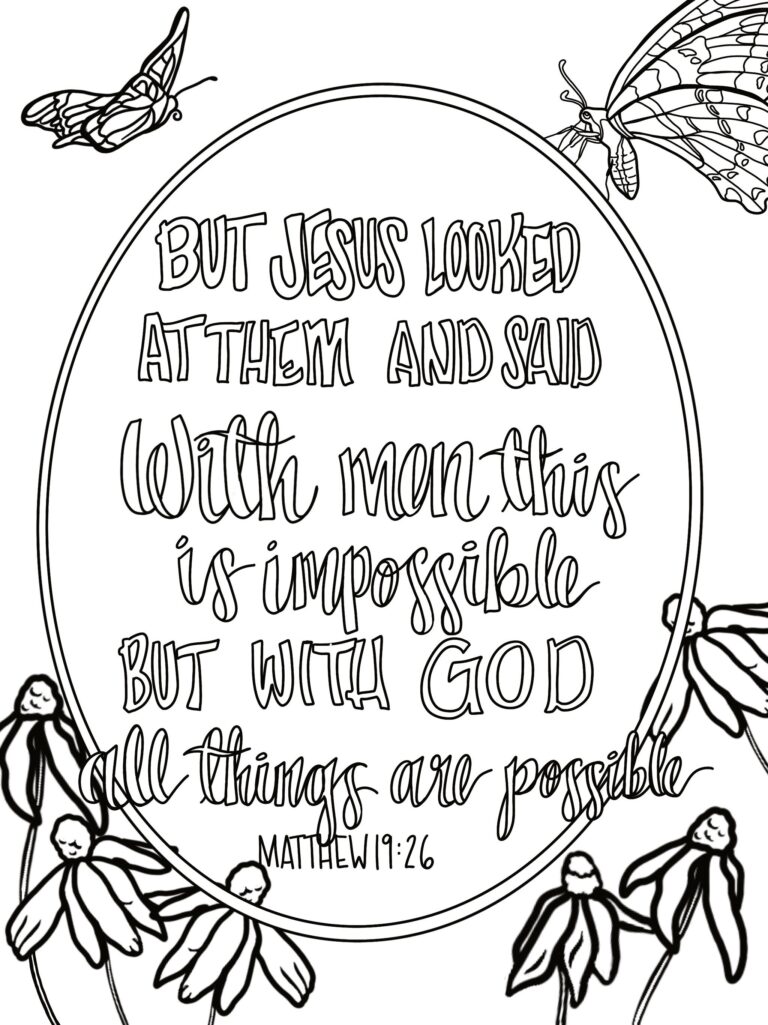 BUT JESUS LOOKED
AT THEM AND SAID
With men this
is impossible
BUT WITH GOD
all things are possible
MATTHEW 19:26